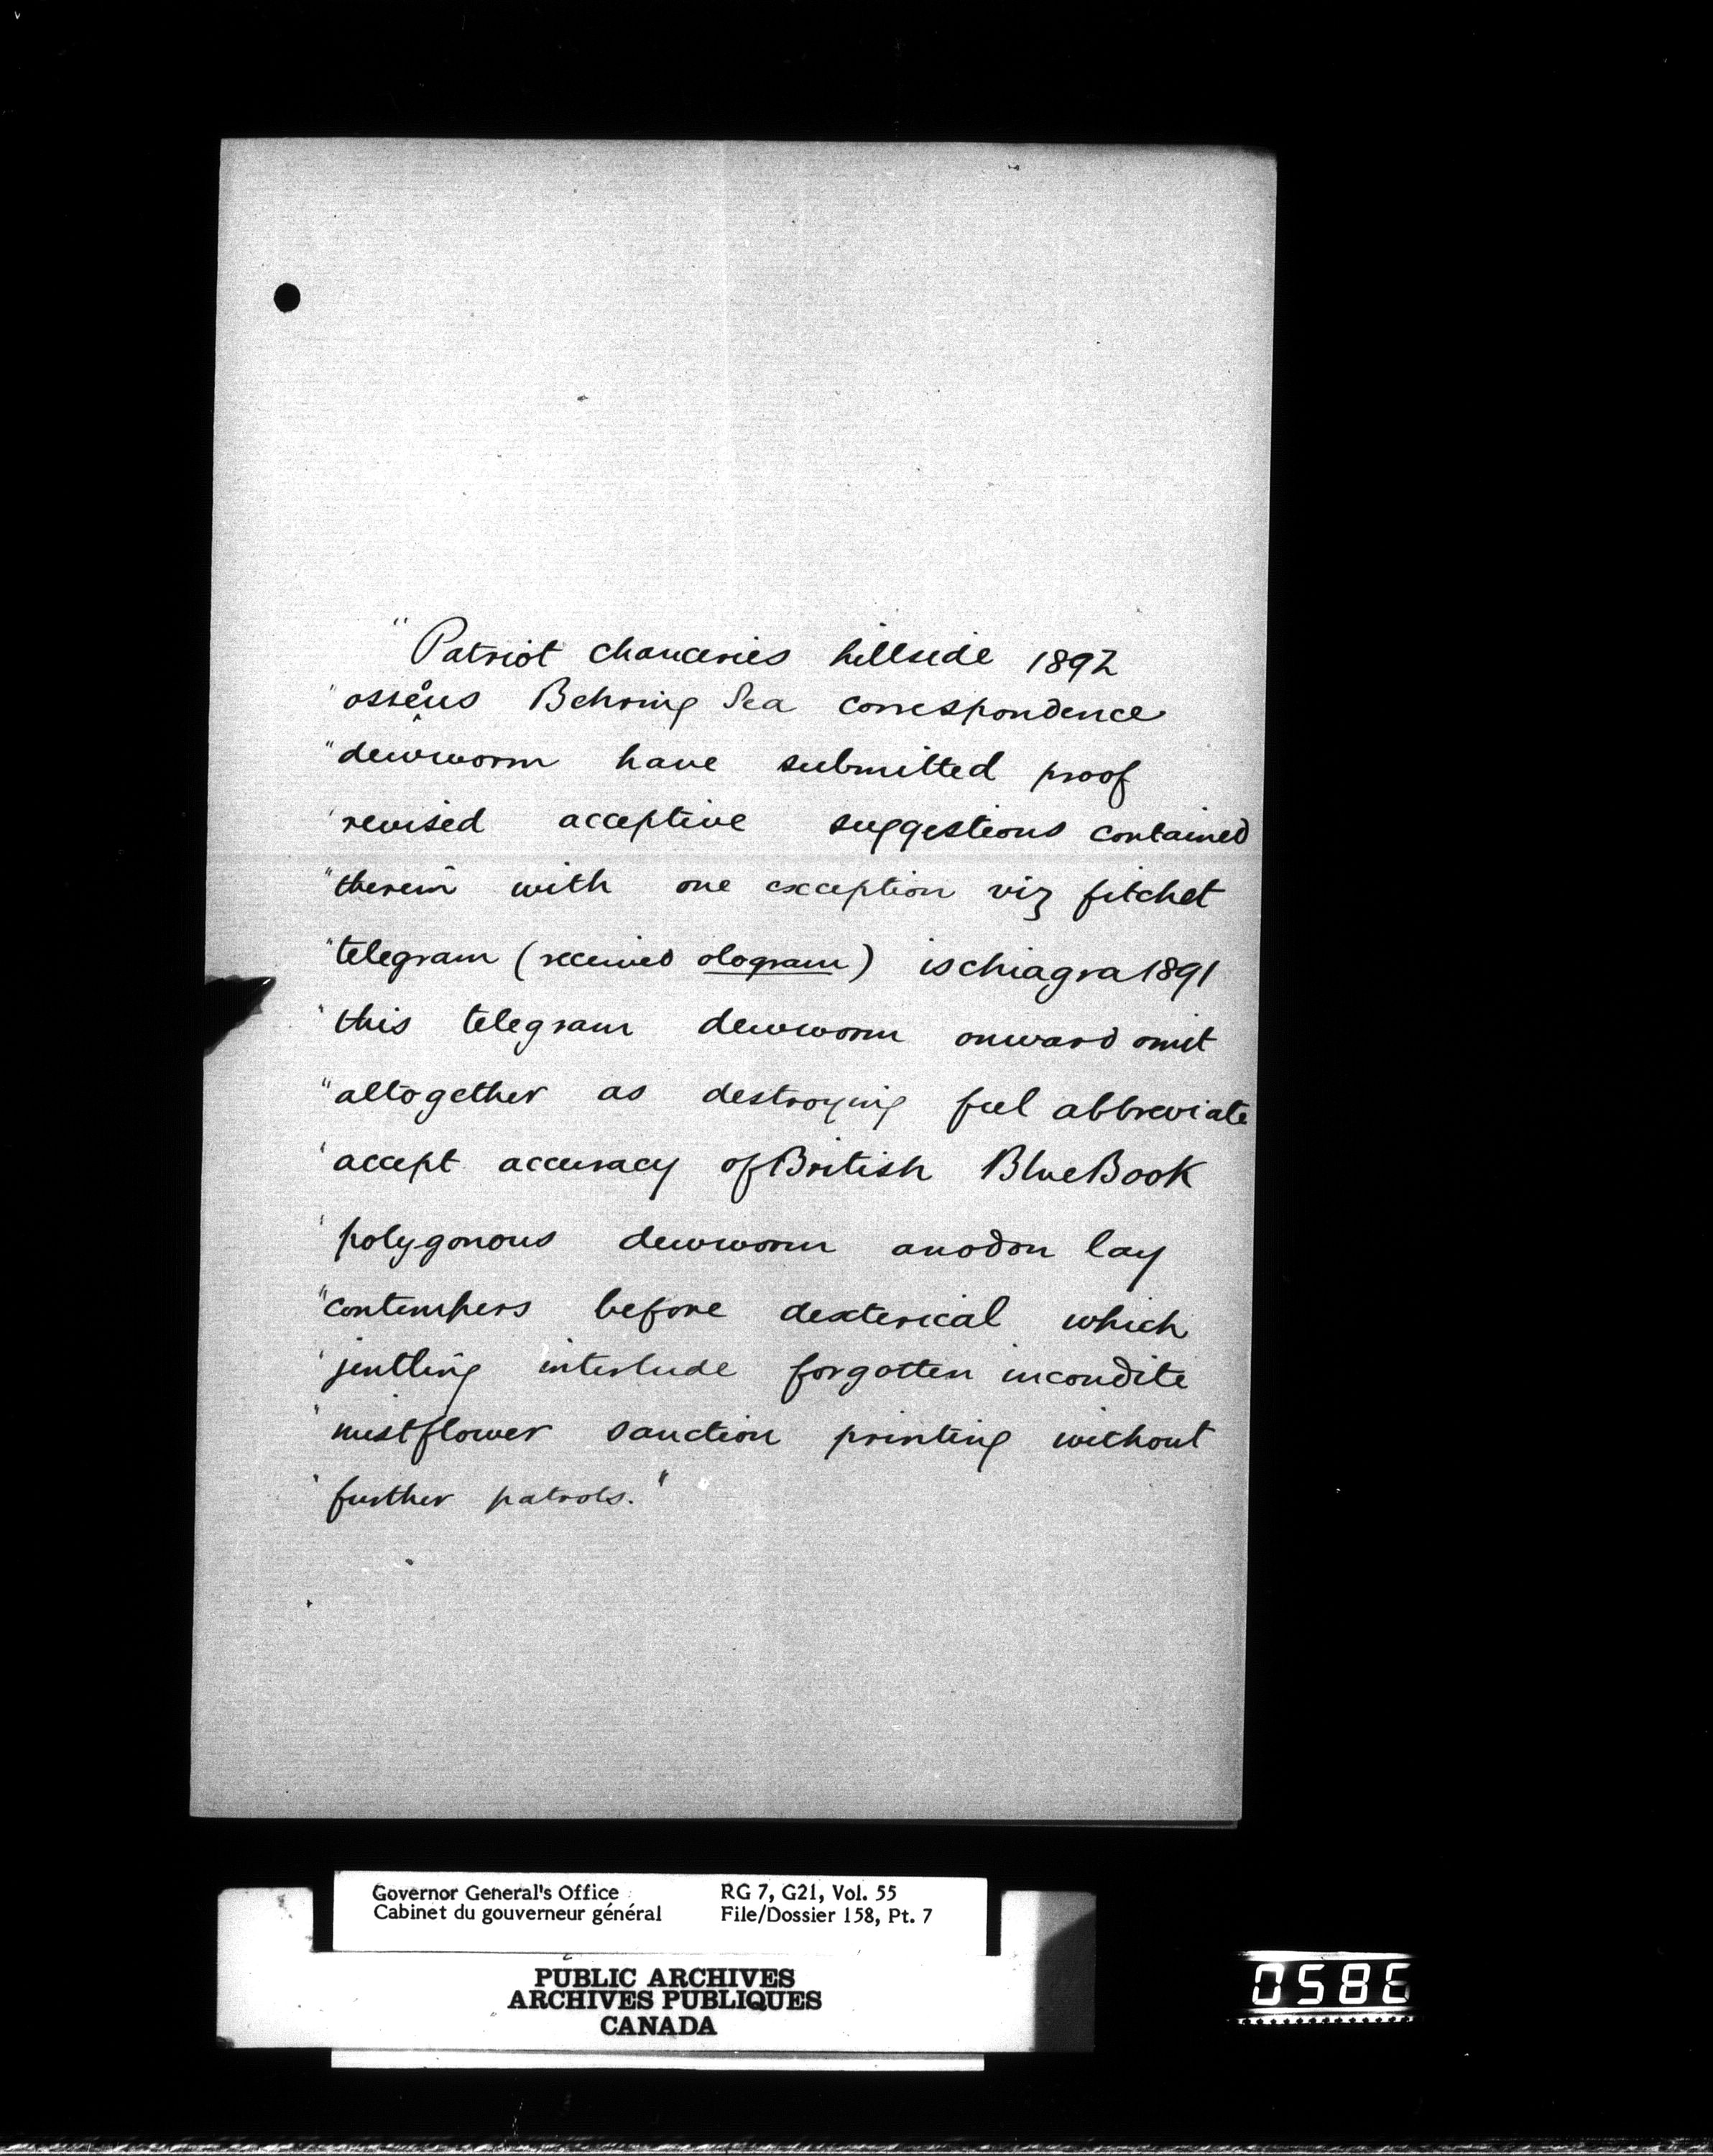 " Patriot chanceries hillside 1892
" osseous Behring Sea correspondence
" dewworm have submitted proof
" revised acceptive suggestions contained
" therein with one exception viz fitchet
" telegram (received ologram) ischiagra 1891
" this telegram dewworm onward omit
" altogether as destroying feel abbreviate
" accept accuracy of British Blue Book
" polygonous dewworm anodon lay
" contempers before dexterical which
" jentling interlude forgotten incondite
" mistflower sanction printing without
" further patrols."
Governor General's Office RG 7, G21, Vol. 55
Cabinet du gouverneur général File/Dossier 158, Pt. 7
PUBLIC ARCHIVES
ARCHIVES PUBLIQUES
CANADA